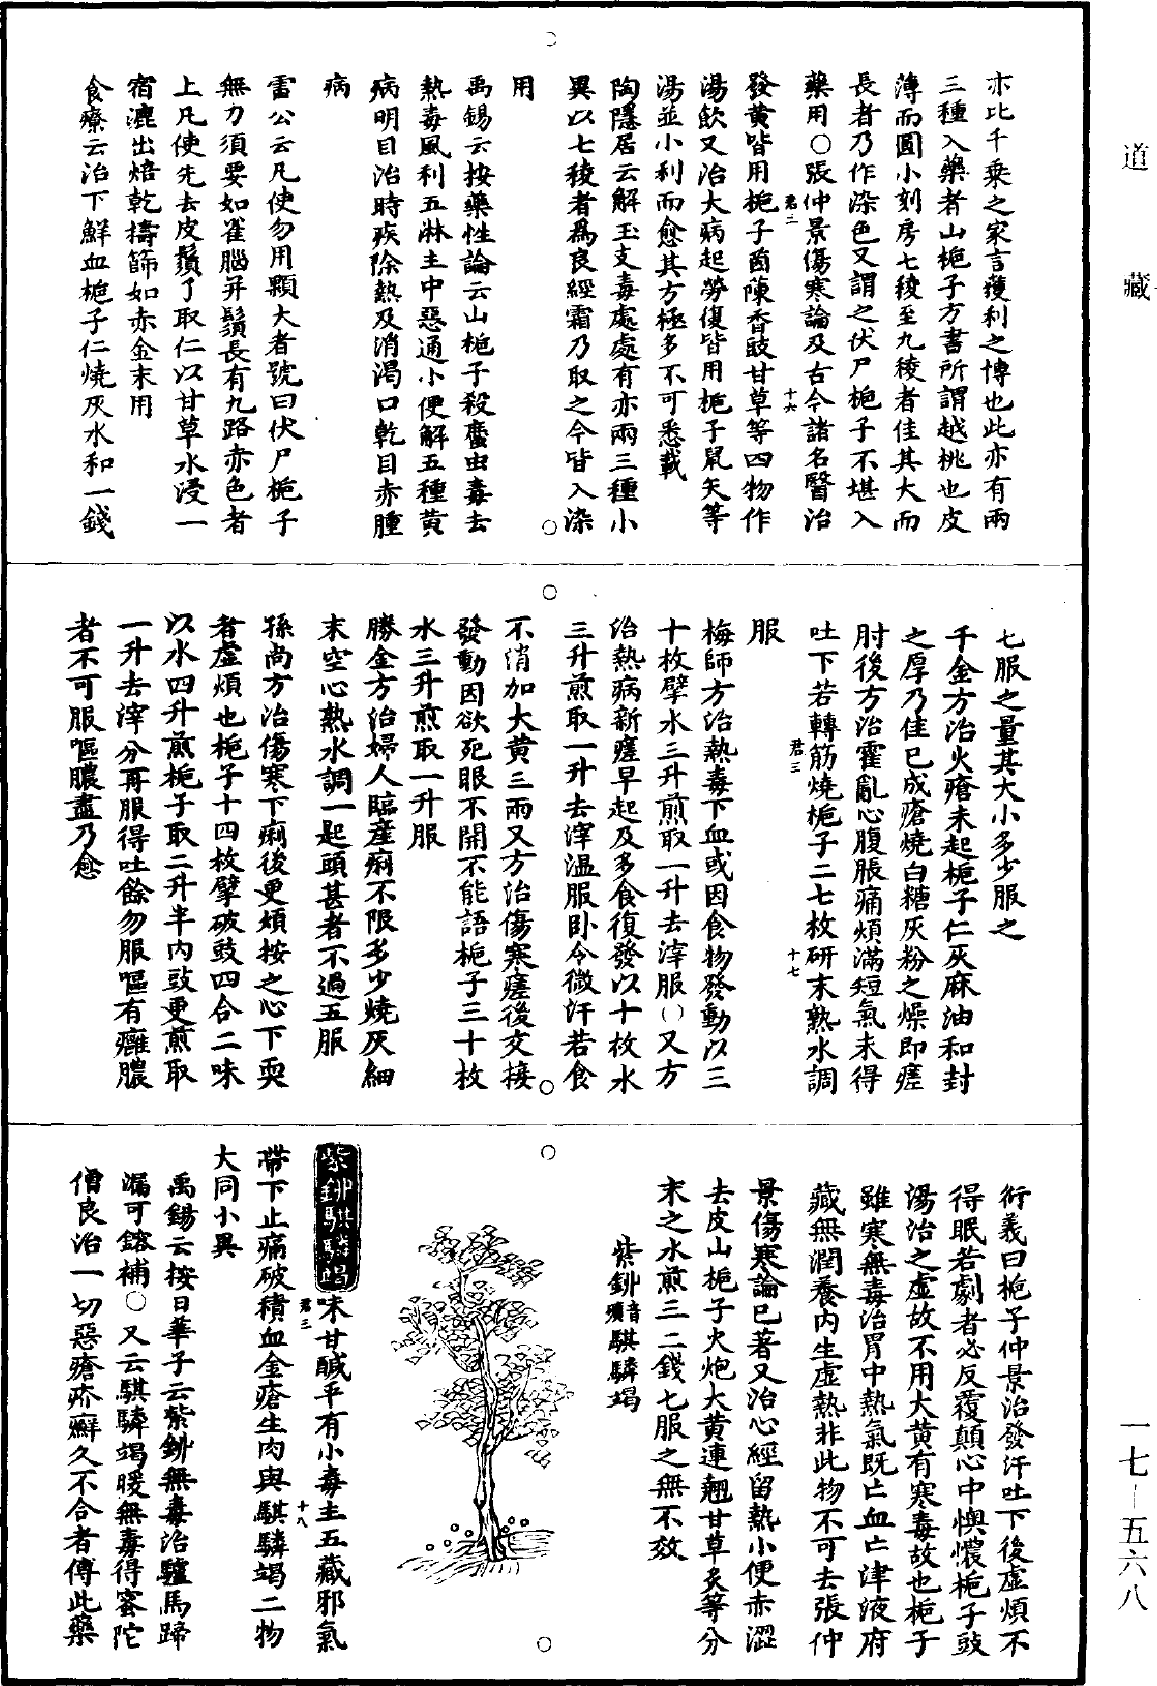 道藏
亦比千乘之家言獲利之博也此亦有兩
三種入藥者山梔子方書所謂越桃也皮
薄而圓小刻房七稜至九稜者佳其大而
長者乃作染色又謂之伏尸梔子不堪入
藥用○張仲景傷寒論及古今諸名醫治
君二 十六
發黃皆用梔子茵蔯香豉甘草等四物作
湯飲又治大病起勞復皆用梔子鼠矢等
湯並小利而愈其方極多不可悉載
陶隱居云解玉支毒處處有亦兩三種小
異以七稜者為良經霜乃取之今皆入染
用
禹錫云按藥性論云山梔子殺䗪虫毒去
熱毒風利五淋主中惡通小便解五種黃
病明目治時疾除熱及消渴口乾目赤腫
病
雷公云凡使勿用顆大者號曰伏尸梔子
無力須要如雀腦并鬚長有九路赤色者
上凡使先去皮鬚了取仁以甘草水浸一
宿漉出焙乾擣篩如赤金末用
食療云治下鮮血梔子仁燒灰水和一錢
七服之量其大小多少服之
千金方治火瘡未起梔子仁灰麻油和封
之厚乃佳已成瘡燒白糖灰粉之燥即瘥
肘後方治霍亂心腹脹痛煩滿短氣未得
吐下若轉筋燒梔子二七枚研末熟水調
君三 十七
服
梅師方治熱毒下血或因食物發動以三
十枚擘水三升煎取一升去滓服○又方
治熱病新瘥早起及多食復發以十枚水
三升煎取一升去滓温服卧令微汗若食
不消加大黃三兩又方治傷寒瘥後交接
發動因欲死眼不開不能語梔子三十枚
水三升煎取一升服
勝金方治婦人臨產痢不限多少燒灰細
末空心熟水調一起頭甚者不過五服
孫尚方治傷寒下痢後更煩按之心下耎
者虛煩也梔子十四枚擘破豉四合二味
以水四升煎梔子取二升半內豉更煎取
一升去滓分再服得吐餘勿服嘔有癰膿
者不可服嘔膿盡乃愈
衍義曰梔子仲景治發汗吐下後虛煩不
得眠若劇者必反覆顛心中懊憹梔子豉
湯治之虛故不用大黃有寒毒故也梔子
雖寒無毒治胃中熱氣既亡血亡津液府
藏無潤養內生虛熱非此物不可去張仲
景傷寒論已著又治心經留熱小便赤澀
去皮山梔子火炮大黃連翹甘草炙等分
末之水煎三二錢七服之無不效
紫鉚音礦騏驎竭
紫鉚騏驎竭味甘鹹平有小毒主五藏邪氣
君三 十八
帶下止痛破積血金瘡生肉與騏驎竭二物
大同小異
禹錫云按日華子云紫鉚無毒治驢馬蹄
漏可鎔補○又云騏驎竭暖無毒得蜜陀
僧良治一切惡瘡疥癬久不合者傅此藥
一七—五六八